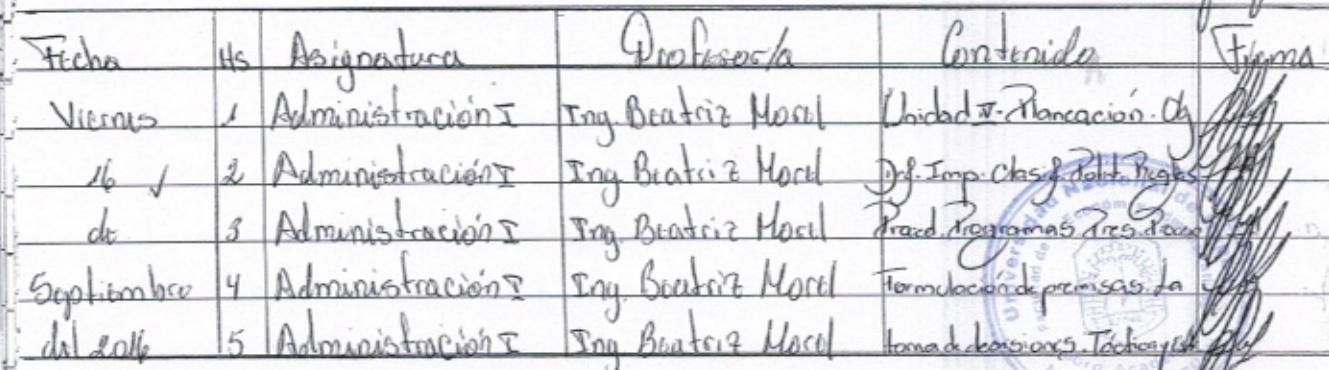 Fecha Hs Asignatura Profesor/a Contenido Firma
Viernes 1 Administración I Ing. Beatriz Morel Unidad V- Planeación. Obj
16 2 Administración I Ing. Beatriz Morel Def. Imp. Clasif. Polit. Reglas
de 3 Administración I Ing. Beatriz Morel Proced. Programas Pres.
Septiembre 4 Administración I Ing. Beatriz Morel Formulación de premisas. La
del 2016 5 Administración I Ing. Beatriz Morel toma de decisiones.
Universidad Nacional de